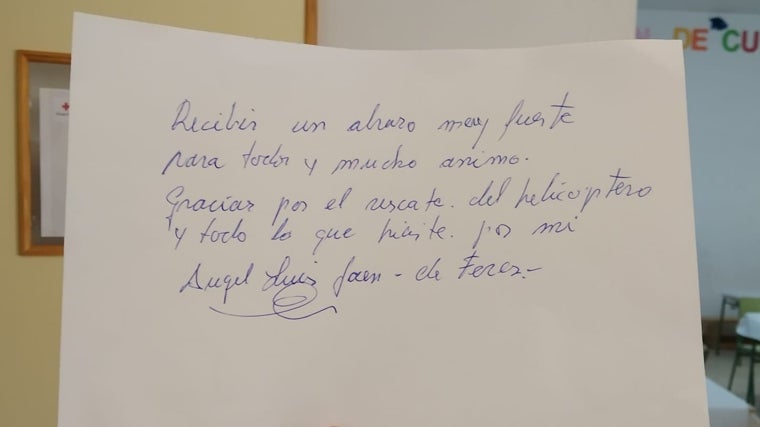 Recibir un abrazo muy fuerte
para todos y mucho animo.
Gracias por el rescate. del helicoptero
y todo lo que hicite. por mi
Angel Luis Jaen - de Ferez.-
DE CU